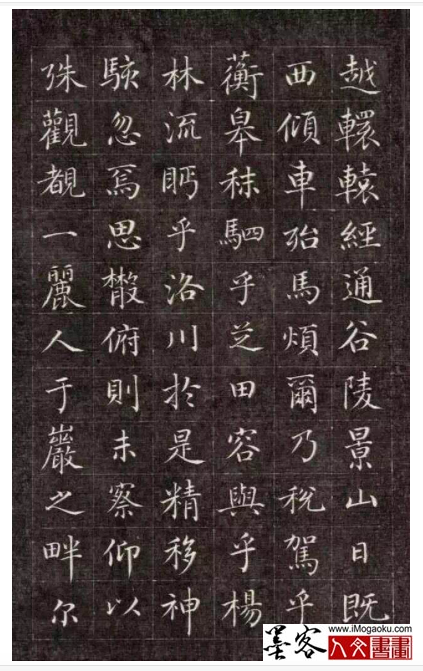 越轘轅經通谷陵景山日既
西傾車殆馬煩爾乃稅駕乎
蘅皋秣駟乎芝田容與乎楊
林流眄乎洛川於是精移神
駭忽焉思㪚俯則未察仰以
殊觀覩一麗人于巖之畔尔
墨客
www.iMogaoku.com
人文書畫